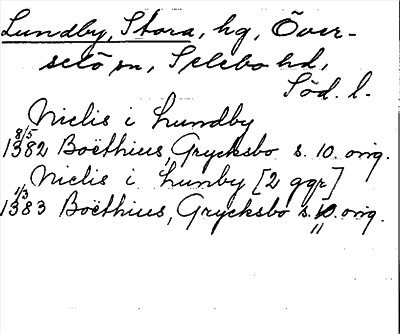 Lundby, Stora, hg, Över-
selö sn, Selebo hd,
Söd. l.
Nielis i Lundby
8/5
1382 Boëthius, Grycksbo s. 10. orig.
Nielis i Lunby [2 ggr]
1/3
1383 Boëthius, Grycksbo s. 10. orig.
11